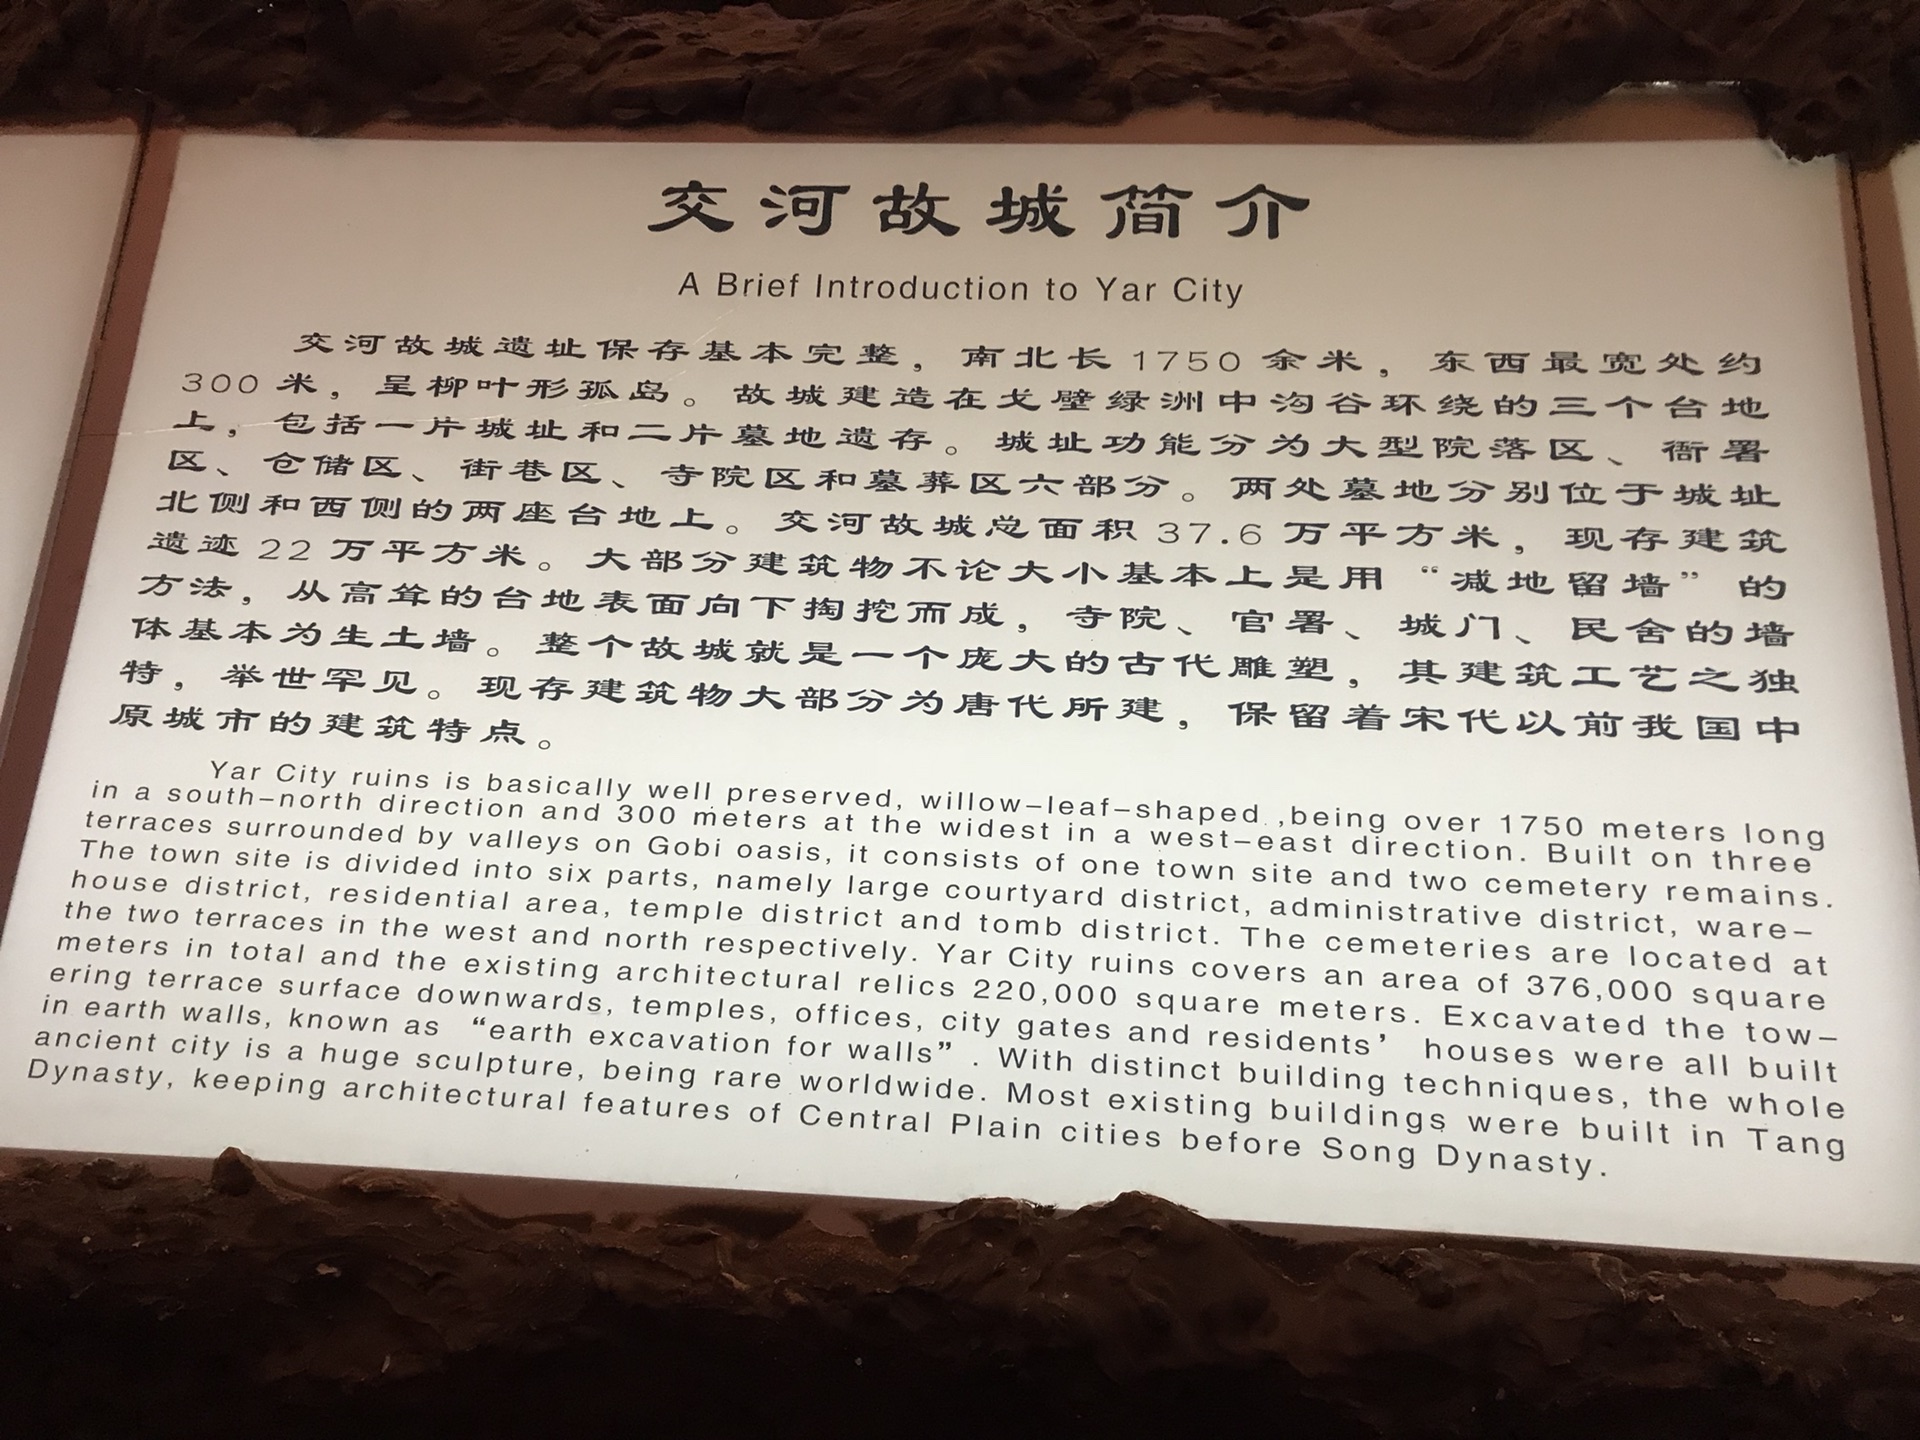 交河故城简介
A Brief Introduction to Yar City
交河故城遗址保存基本完整，南北长1750余米，东西最宽处约
300米，呈柳叶形孤岛。故城建造在戈壁绿洲中沟谷环绕的三个台地
上，包括一片城址和二片墓地遗存。城址功能分为大型院落区、衙署
区、仓储区、街巷区、寺院区和墓葬区六部分。两处墓地分别位于城址
北侧和西侧的两座台地上。交河故城总面积37.6万平方米，现存建筑
遗迹22万平方米。大部分建筑物不论大小基本上是用“减地留墙”的
方法，从高耸的台地表面向下掏挖而成，寺院、官署、城门、民舍的墙
体基本为生土墙。整个故城就是一个庞大的古代雕塑，其建筑工艺之独
特，举世罕见。现存建筑物大部分为唐代所建，保留着宋代以前我国中
原城市的建筑特点。
Yar City ruins is basically well preserved, willow-leaf-shaped ,being over 1750 meters long
in a south-north direction and 300 meters at the widest in a west-east direction. Built on three
terraces surrounded by valleys on Gobi oasis, it consists of one town site and two cemetery remains.
The town site is divided into six parts, namely large courtyard district, administrative district, ware-
house district, residential area, temple district and tomb district. The cemeteries are located at
the two terraces in the west and north respectively. Yar City ruins covers an area of 376,000 square
meters in total and the existing architectural relics 220,000 square meters. Excavated the tow-
ering terrace surface downwards, temples, offices, city gates and residents’ houses were all built
in earth walls, known as “earth excavation for walls”. With distinct building techniques, the whole
ancient city is a huge sculpture, being rare worldwide. Most existing buildings were built in Tang
Dynasty, keeping architectural features of Central Plain cities before Song Dynasty.